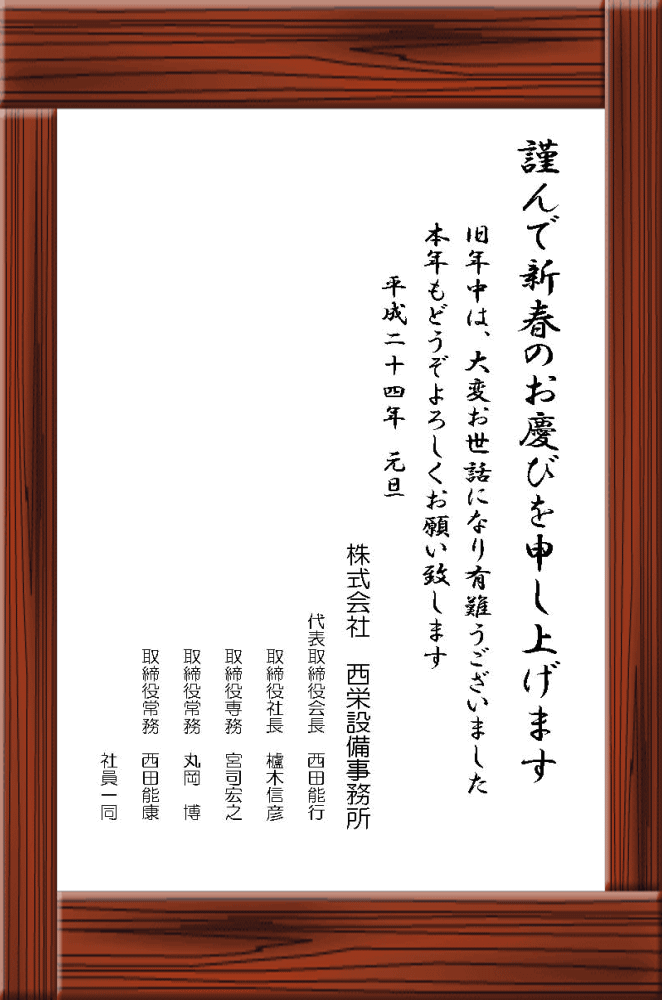 謹んで新春のお慶びを申し上げます
旧年中は、大変お世話になり有難うございました
本年もどうぞよろしくお願い致します
平成二十四年 元旦
株式会社 西栄設備事務所
代表取締役会長 西田能行
取締役社長 櫨木信彦
取締役専務 宮司宏之
取締役常務 丸岡 博
取締役常務 西田能康
社員一同